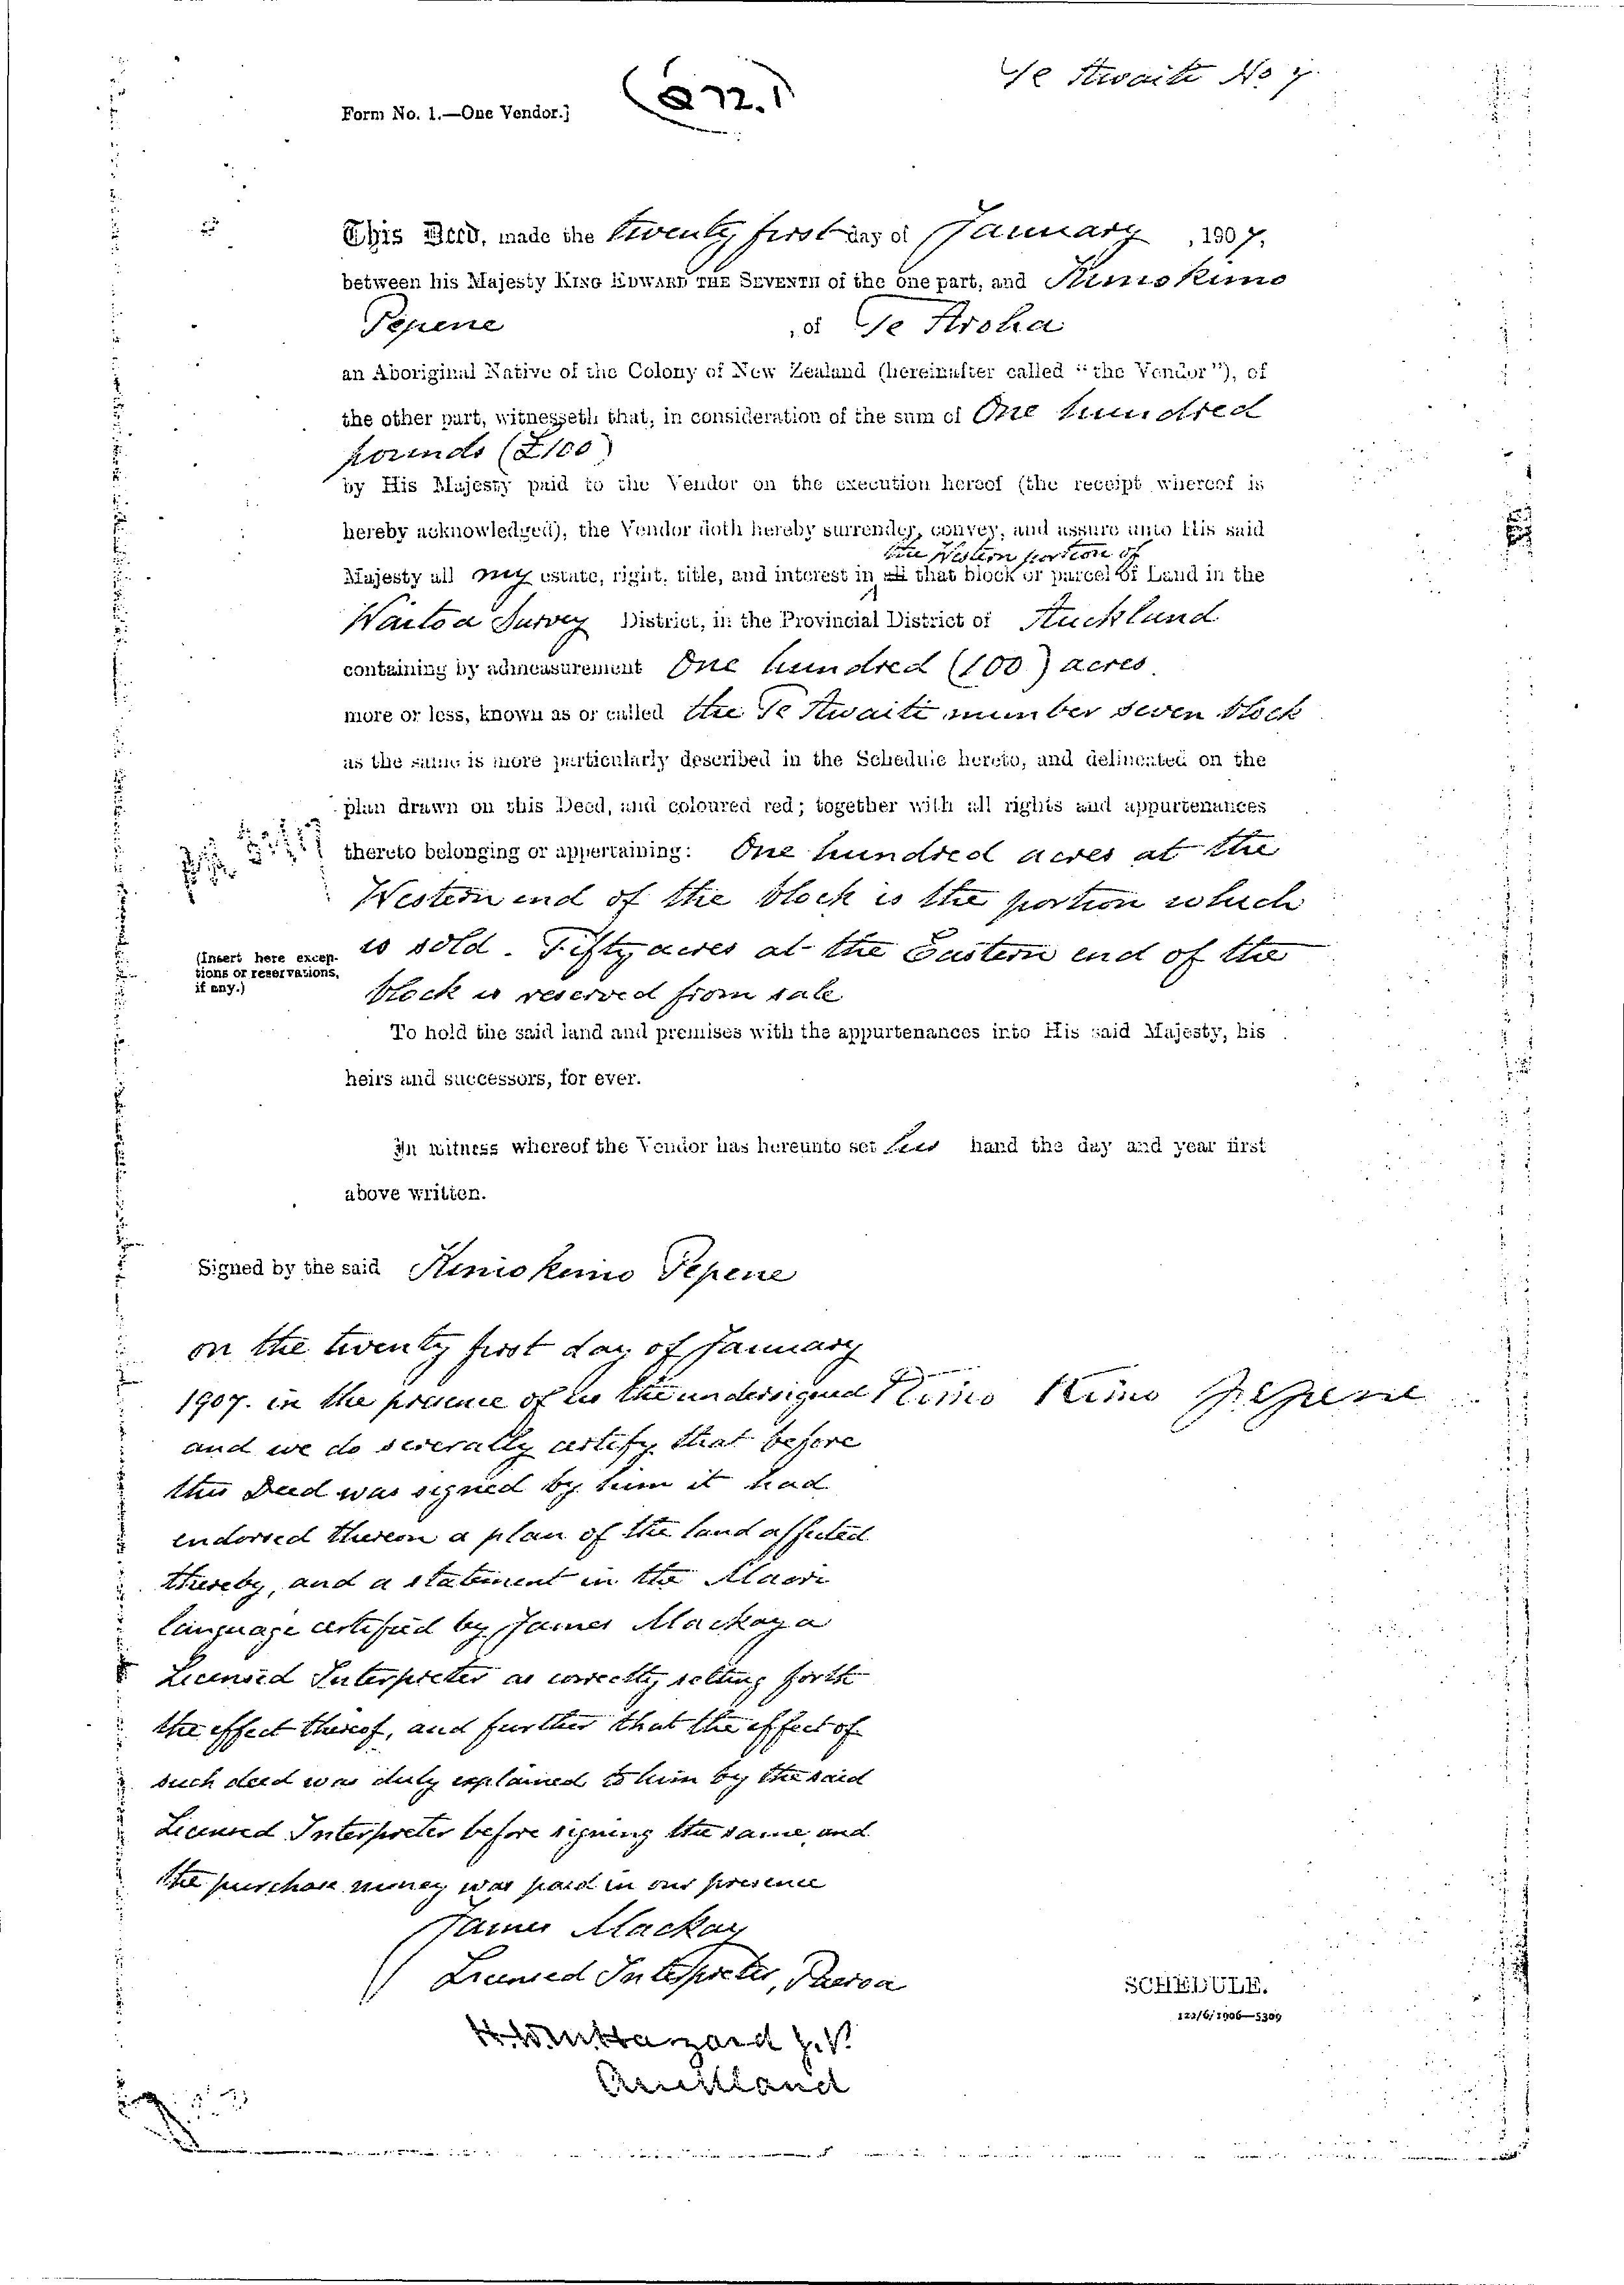 Te Awaiti No 7.
Form No. 1.—One Vendor.]
This Deed, made the twenty first day of January, 1907.
between his Majesty KING EDWARD THE SEVENTH of the one part, and
Pepene, of Te Aroha
an Aboriginal Native of the Colony of New Zealand (hereinafter called "the Vendor"), of
the other part, witnesseth that, in consideration of the sum of One hundred
pounds (£100)
by His Majesty paid to the Vendor on the execution hereof (the receipt whereof is
hereby acknowledged), the Vendor doth hereby surrender, convey, and assure unto His said
the Western portion of
Majesty all my estate, right, title, and interest in all that block or parcel of Land in the
Waitoa Survey District, in the Provincial District of Auckland
containing by admeasurement One hundred (100) acres
more or less, known as or called the Te Awaiti number seven block
as the same is more particularly described in the Schedule hereto, and delineated on the
plan drawn on this Deed, and coloured red; together with all rights and appurtenances
thereto belonging or appertaining: One hundred acres at the
Western end of the block is the portion which
(Insert here exceptions or reservations, if any.)
is sold. Fifty acres at the Eastern end of the
block is reserved from sale
To hold the said land and premises with the appurtenances into His said Majesty, his
heirs and successors, for ever.
In witness whereof the Vendor has hereunto set his hand the day and year first
above written.
Signed by the said Pepene
on the twenty first day of January
1907. in the presence of us the undersigned
Kimo Pepene
and we do severally certify that before
this Deed was signed by him it had
endorsed thereon a plan of the land affected
thereby, and a statement in the Maori
language certified by James Mackay a
Licensed Interpreter as correctly setting forth
the effect thereof, and further that the effect of
such deed was duly explained to him by the said
Licensed Interpreter before signing the same, and
the purchase money was paid in our presence
James Mackay
Licensed Interpreter, Paeroa
J.P.
Auckland
SCHEDULE.
123/6/1906—5309